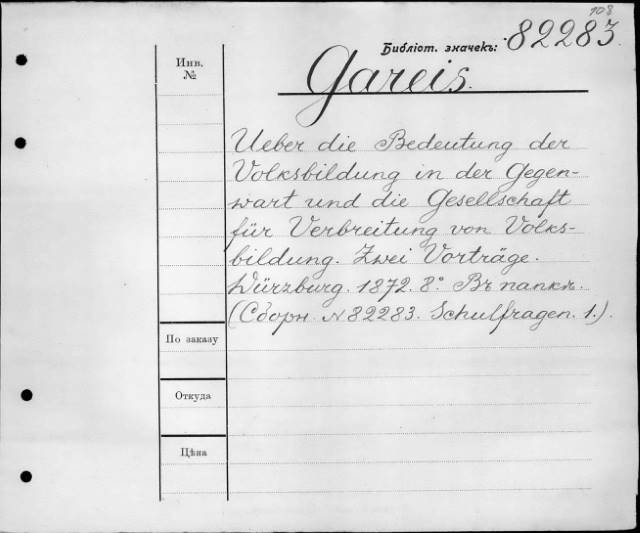 108
Библiот. значекъ: 82283.
Gareis.
Инв.
№
Ueber die Bedeutung der
Volksbildung in der Gegen-
wart und die Gesellschaft
für Verbreitung von Volks-
bildung. Zwei Vorträge.
Würzburg. 1872. 8° Въ папкѣ.
(Сборн. № 82283. Schulfragen. 1.).
По заказу
Откуда
Цѣна